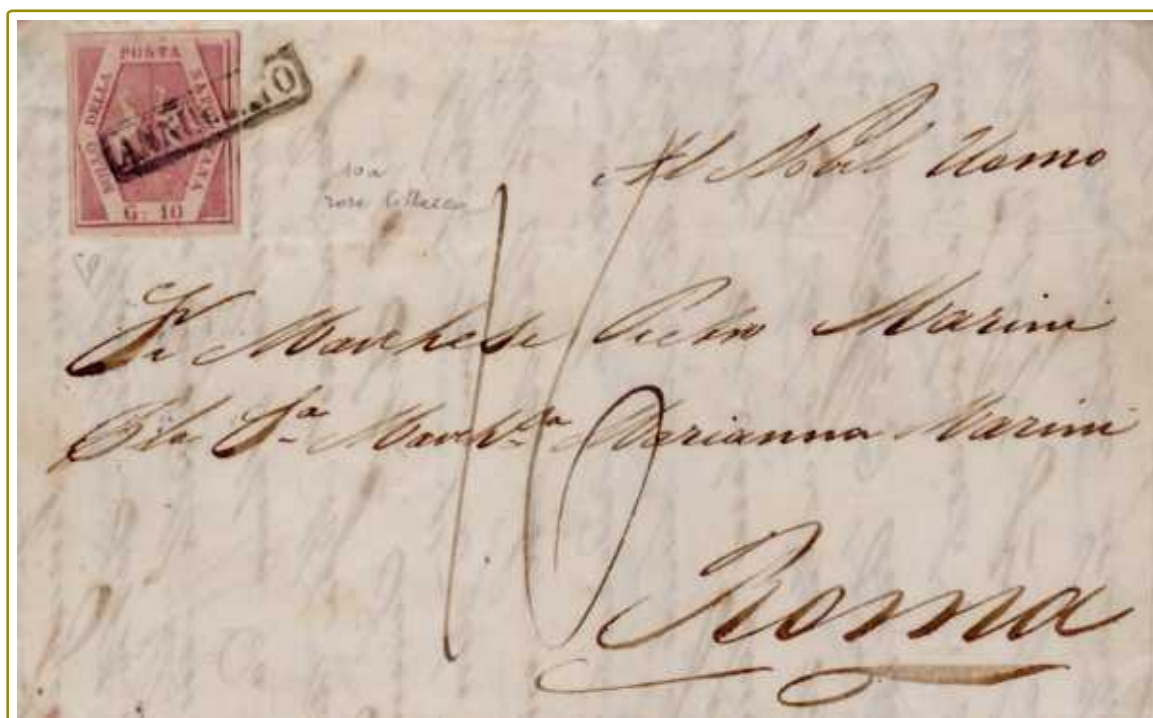 BOLLO DELLA POSTA NAPOLETANA
G. 10
ANNULLATO
10a
rosa
Al Nobil Uomo
16
Sr Marchese Pietro Marini
Sa Marchsa Marianna Marini
Roma